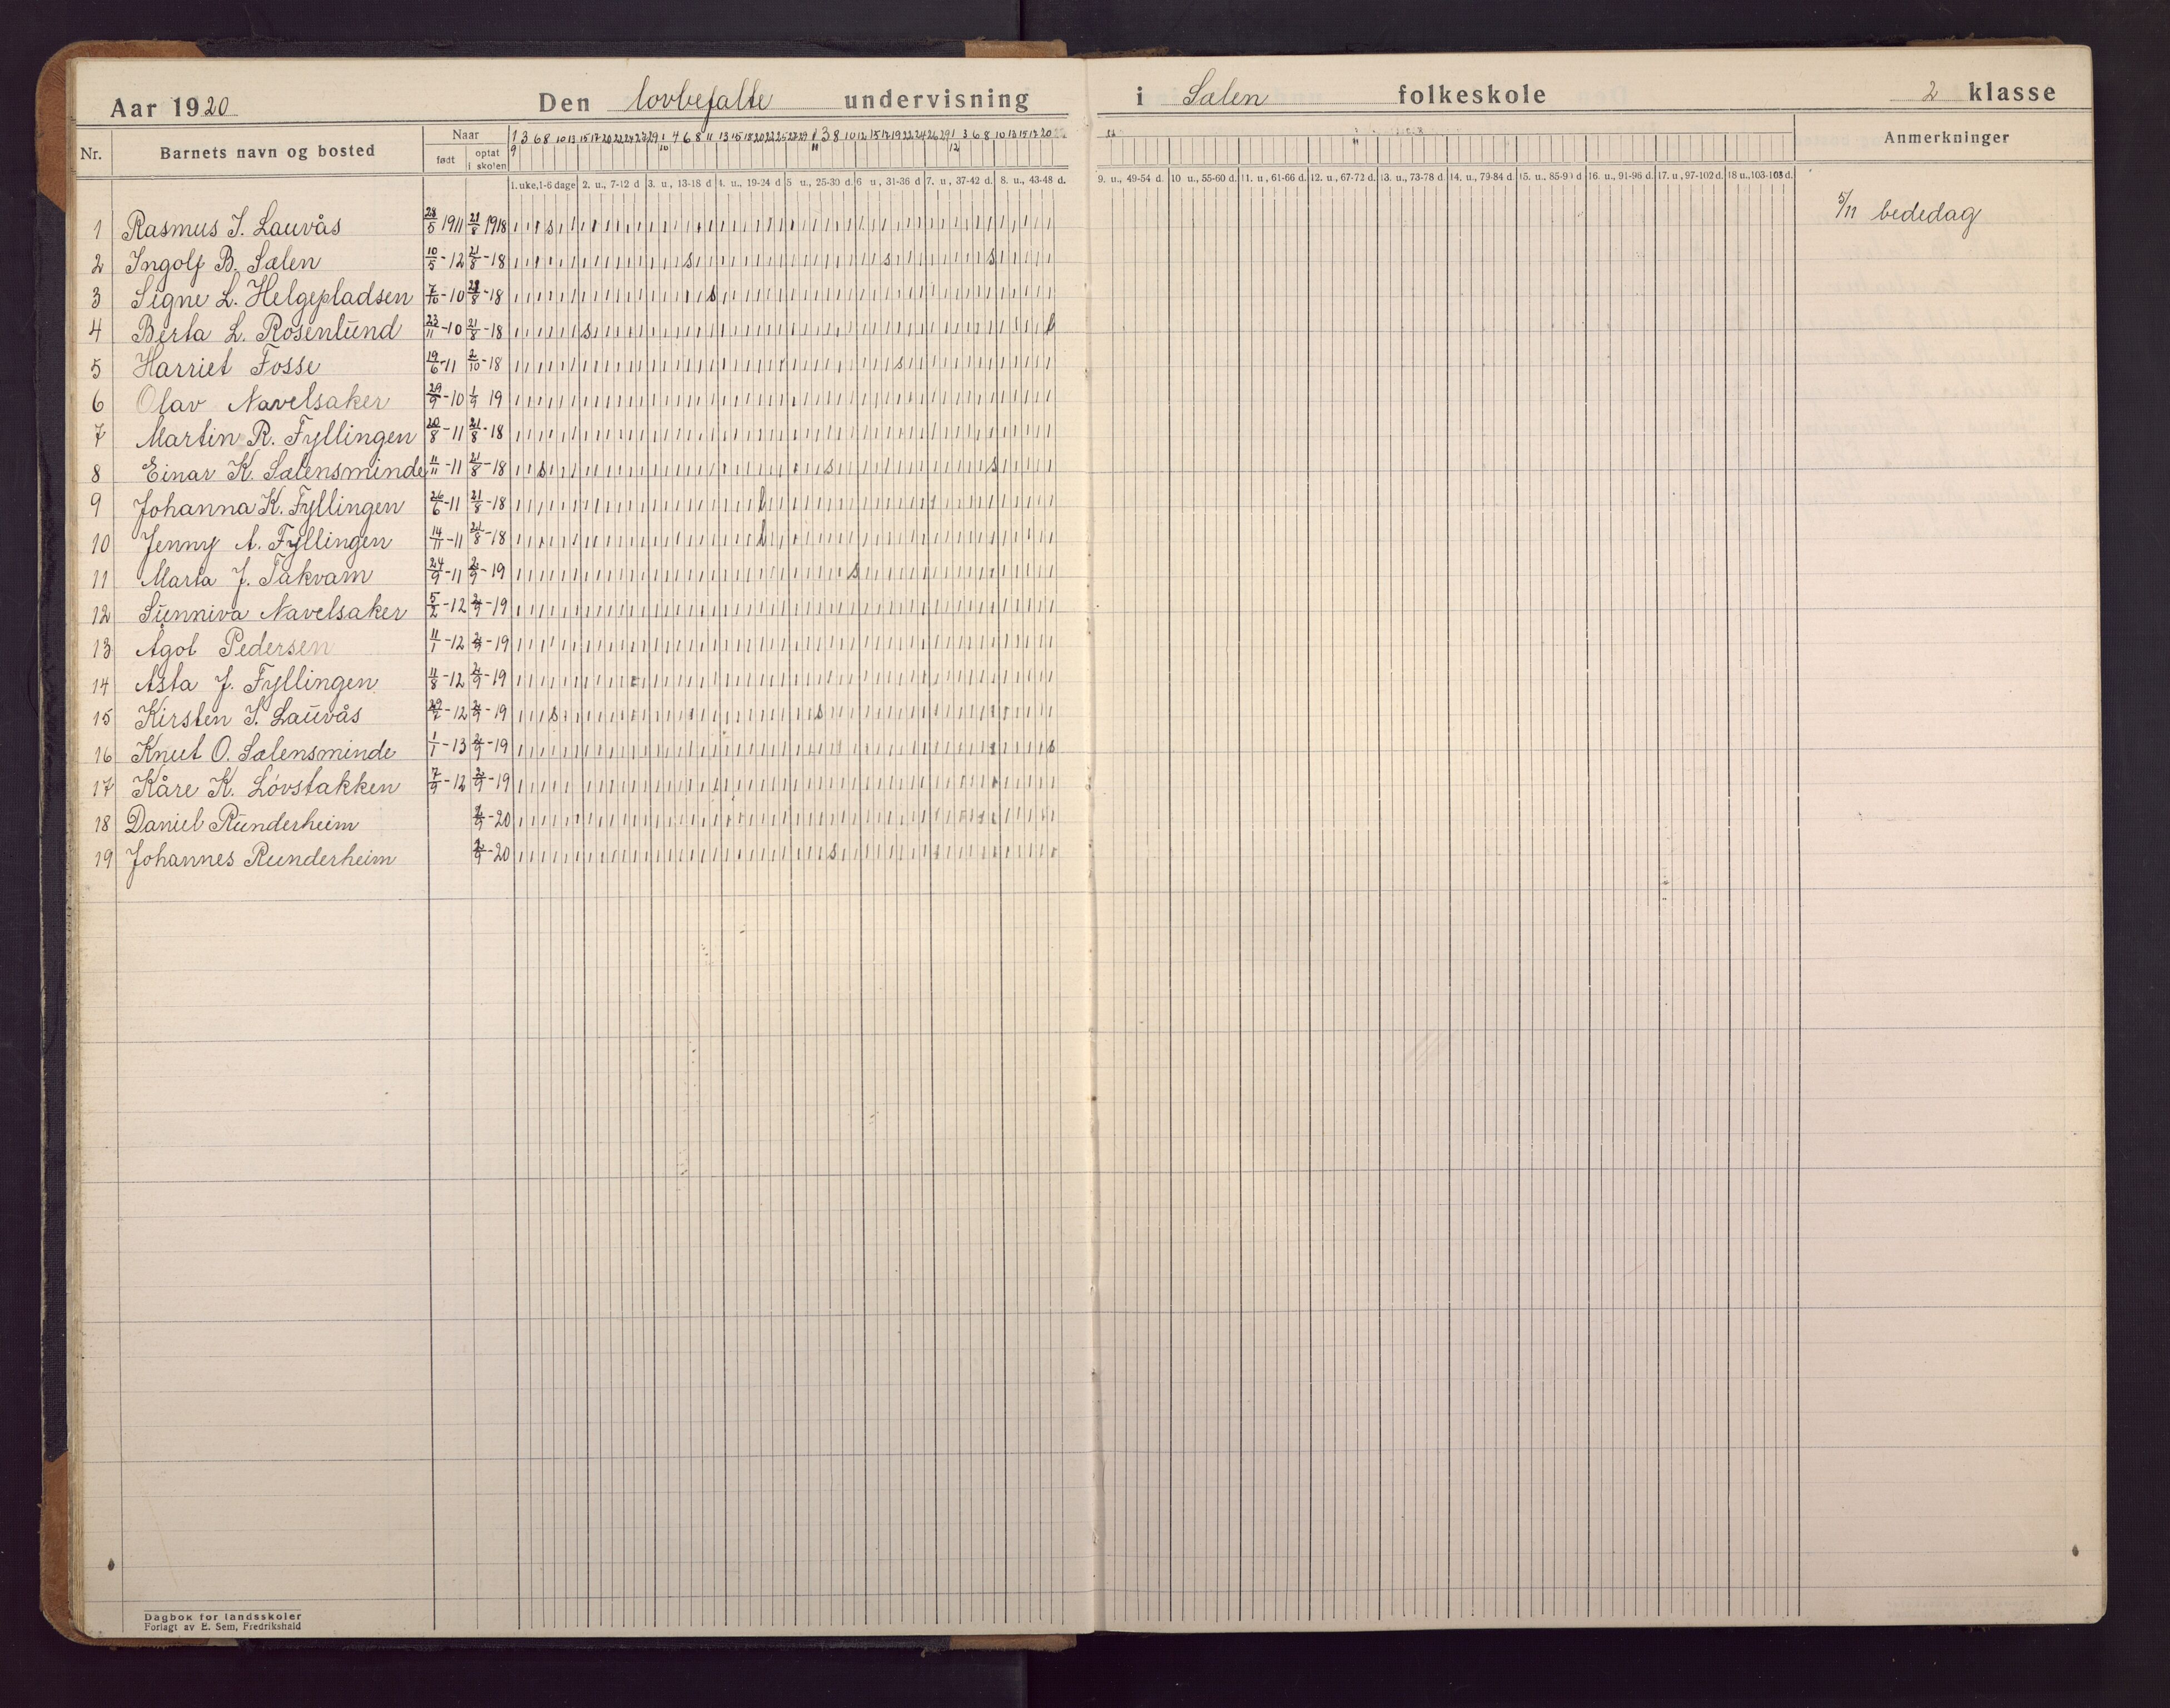 Aar 1920 Den lovbefalte undervisning i Sælen folkeskole 2 klasse
Nr. Barnets navn og bosted Naar født optat i skolen Anmerkninger
1 3 6 8 10 13 15 17 20 22 24 27 29 1 4 6 8 11 13 15 18 20 22 25 27 29 1 3 8 10 12 15 17 19 22 24 26 29 1 3 6 8 10 13 15 17 20
9 10 11 12
1. uke, 1-6 dage 2. u., 7-12 d 3. u., 13-18 d 4. u., 19-24 d 5 u., 25-30 d. 6 u., 31-36 d 7. u., 37-42 d. 8. u., 43-48 d. 9. u., 49-54 d. 10 u., 55-60 d. 11. u., 61-66 d. 12. u., 67-72 d. 13. u., 73-78 d. 14. u., 79-84 d 15. u., 85-90 d 16. u., 91-96 d. 17. u, 97-102 d. 18 u., 103-108 d.
5/11 bededag
1 Rasmus I. Lauvås 28/5 1911 21/8 1918
2 Ingolf B. Sælen 10/5 - 12 21/8 - 18
3 Signe L. Helgepladsen 7/10 - 10 21/8 - 18
4 Berta L. Rosenlund 23/11 - 10 21/8 - 18
5 Harriet Fosse 19/6 - 11 2/10 - 18
6 Olav Navelsaker 29/9 - 10 1/9 19
7 Martin R. Fyllingen 20/8 - 11 21/8 - 18
8 Einar K. Sælensminde 11/11 - 11 21/8 - 18
9 Johanna K. Fyllingen 26/6 - 11 21/8 - 18
10 Jenny A. Fyllingen 14/11 - 11 21/8 - 18
11 Marta J. Takvam 24/9 - 11 2/9 - 19
12 Sunniva Navelsaker 5/2 - 12 2/9 - 19
13 Agot Pedersen 11/1 - 12 2/9 - 19
14 Asta J. Fyllingen 11/8 - 12 2/9 - 19
15 Kirsten I. Lauvås - 12 2/9 - 19
16 Knut O. Sælensminde 1/1 - 13 2/9 - 19
17 Kåre K. Lövstakken 7/9 - 12 2/9 - 19
18 Daniel Runderheim - 20
19 Johannes Runderheim - 20
Dagbok for landsskoler
Forlagt av E. Sem, Fredrikshald